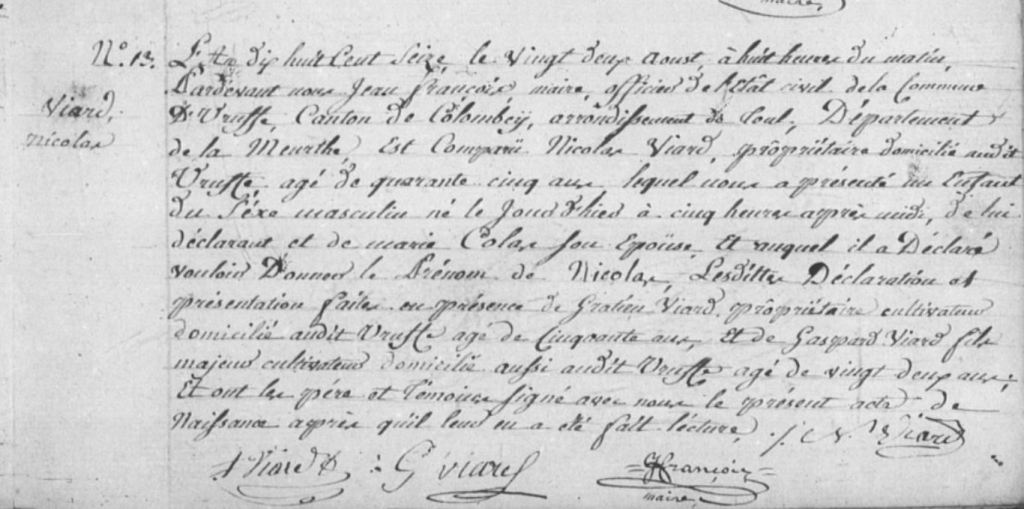 maire
N.° 13. L'An dix huit Cent Seize, le vingt deux Aoust, à huit heures du matin,
Pardevant nous Jean françois maire, officier de l'Etat civil de la Commune
Viard, d'Uruffe, Canton de Colombey, arrondissement de Toul, Département
Nicolas de la Meurthe, Est Comparü Nicolas Viard, propriétaire domicilié audit
Uruffe, agé de quarante cinq ans, lequel nous a présenté un Enfant
du Séxe masculin né le Jour d'hier à cinq heures après midi, de lui
déclarant et de marie Colas son Epoüse, Et auquel il a Déclaré
vouloir Donner le Prénom de Nicolas, Lesdittes Déclaration et
présentation faites en présence de Gratien Viard, propriétaire cultivateur
domicilié audit Uruffe agé de Cinquante ans, Et de Gaspard Viard fils
majeur cultivateur domicilié aussi audit Uruffe agé de vingt deux ans;
Et ont les pére et Témoins signé avec nous le présent acte de
Naissance après qu'il leur en a été fait lécture, ./. N Viard
Viard G viard françois
maire